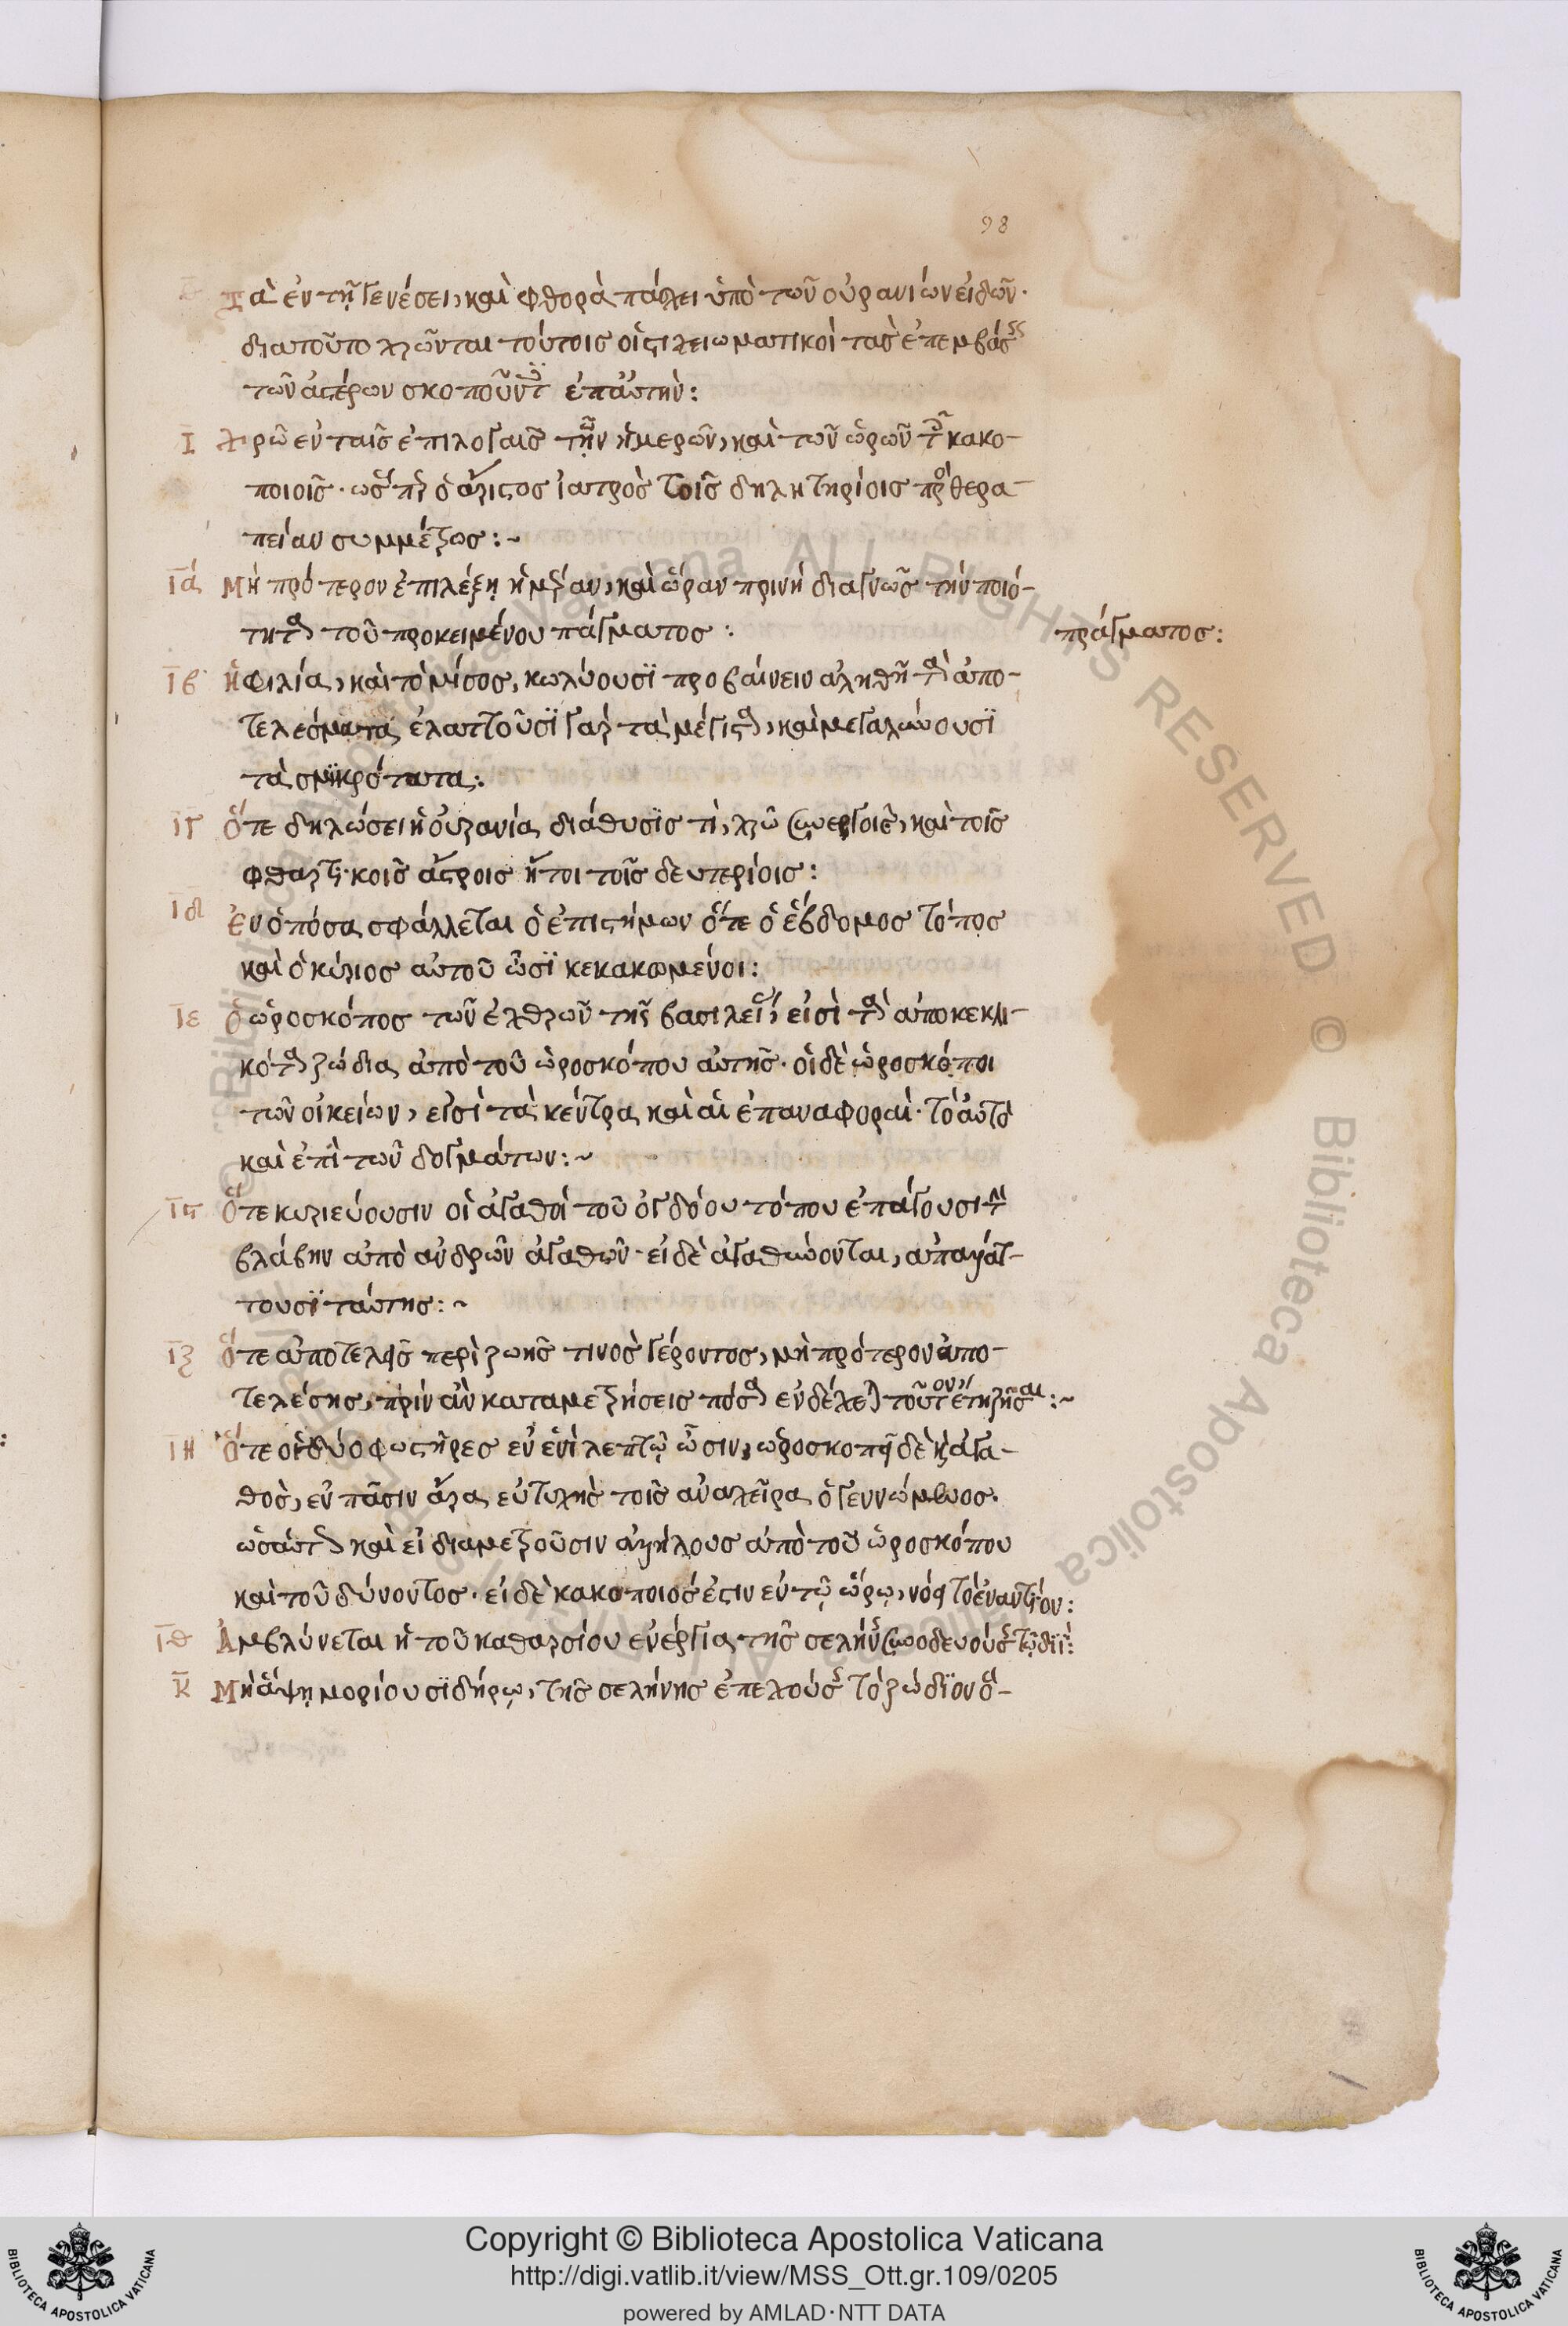 98
Τὰ ἐν τῆ γενέσει, καὶ φθορὰ πάσχει ὑπὸ τῶν οὐρανίων εἰδῶν·
διατοῦτο χρῶνται τούτοις οἱ στιχειωματικοὶ τὰς ἐπεμβάσεις
τῶν ἀστέρων σκοποῦντες ἐπ' αὐτὴν:
ῑ χρῶ ἐν ταῖς ἐπιλογαῖς τῶν ἡμερῶν, καὶ τῶν ὡρῶν τοῖς κακο-
ποιοῖς· ὥσπερ ὁ ἄριστος ἰατρὸς τοῖς δηλητηρίοις πρὸς θερα-
πείαν συμμέτρως:~
ῑά Μὴ πρότερον ἐπιλέξη ἡμέραν, καὶ ὥραν πρινὴ διαγνῶς τὴν ποιό-
τητα τοῦ προκειμένου πάγματος: πράγματος:
ῑβ ἡ φιλία, καὶ τὸ μίσος, κωλύουσϊ προβαίνειν ἀληθῆ τὰ ἀπο-
τελεσματα ἐλαττοῦσϊ γὰρ τὰ μέγιστα, καὶ μεγαλύνουσϊ
τὰ σμϊκρότατα:
ῑγ ὅτε δηλώσει ἡ οὐρανία διάθυσϊς τὶ, χρῶ συνεργοῖς, καὶ τοῖς
φθαρτικοῖς ἄστροις ἤτοι τοῖς δευτερίοις:
ῑδ ἐν ὁπόσα σφάλλεται ὁ ἐπιστήμων ὅτε ὁ ἕβδομος τόπος
καὶ ὁ κύριος αὐτοῦ ὦσϊ κεκακωμένοι:
ῑε ὁ ὡροσκόπος τῶν ἐχθρῶν τῆς βασιλείας, εἰσὶ τὰ ἀποκεκλι-
κότα ζώδια ἀπὸ τοῦ ὡροσκόπου αὐτῆς· οἱ δὲ ὡροσκόποι
τῶν οἰκείων, εἰσὶ τὰ κέντρα καὶ αἱ ἐπαναφοραὶ· τὸ αὐτὸ
καὶ ἐπὶ τῶν δογμάτων:~
ῑς ὅτε κυριεύουσιν οἱ ἀγαθοὶ τοῦ ὀγδόου τόπου ἐπάγουσι τὴν
βλάβην ἀπὸ ἀνδρῶν ἀγαθῶν· εἰ δὲ ἀγαθύνονται, ἀπαλλάτ-
τουσϊ ταύτης:~
ῑζ ὅτε ἀποτελῆς περὶ ζωῆς τινὸς γέροντος, μὴ πρότερον ἀπο-
τελέσης, πρὶν ἂν καταμετρήσεις πόσα ἐνδέχεται τοῦτον ἔτη ζῆσαι:~
ῑη ὅτε οἱ δύο φωστῆρες ἐν ἑνὶ λεπτῷ ὦσιν, ὡροσκοπῆ δὲ καὶ ἀγα-
θὸς, ἐν πᾶσιν ἄρα εὐτυχὴς τοῖς ἀνὰ χεῖρα ὁ γεννώμενος.
ὡσαύτως καὶ εἰ διαμετροῦσιν ἀλλήλους ἀπὸ τοῦ ὡροσκόπου
καὶ τοῦ δύνοντος· εἰ δὲ κακοποιός ἐστιν ἐν τῷ ὥρῳ, νόει τὸ ἐναντίον:
ῑθ Ἀμβλύνεται ἡ τοῦ καθαρσίου ἐνέργια, τῆς σελήνης συνοδευούσης τῷ διΐ:
κ̄ Μὴ ἅψῃ μορίου σϊδήρῳ, τῆς σελήνης ἐπεχούσης τὸ ζώδϊον ὃ-
Copyright © Biblioteca Apostolica Vaticana
http://digi.vatlib.it/view/MSS_Ott.gr.109/0205
powered by AMLAD·NTT DATA